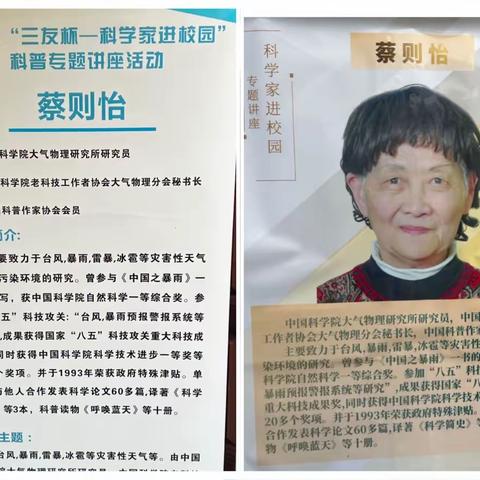 “三友杯—科学家进校园”
科普专题讲座活动
蔡则怡
科学院大气物理研究所研究员
科学院老科技工作者协会大气物理分会秘书长
科普作家协会会员
简介:
要致力于台风,暴雨,雷暴,冰雹等灾害性天气
污染环境的研究。曾参与《中国之暴雨》一
写, 获中国科学院自然科学一等综合奖。参
五”科技攻关:“台风,暴雨预报警报系统等
,成果获得国家“八五”科技攻关重大科技成
同时获得中国科学院科学技术进步一等奖等
个奖项。并于1993年荣获政府特殊津贴。单
与他人合作发表科学论文60多篇,译著《科学
等3本, 科普读物《呼唤蓝天》等十册。
主题:
台风,暴雨,雷暴,冰雹等灾害性天气等。由中国
蔡则怡
科学家进校园
专题讲座
中国科学院大气物理研究所研究员, 中国
工作者协会大气物理分会秘书长, 中国科普作家
主要致力于台风,暴雨,雷暴,冰雹等灾害性
染环境的研究。曾参与《中国之暴雨》一书的
科学院自然科学一等综合奖。参加“八五”科技
暴雨预报警报系统等研究”,成果获得国家“八
重大科技成果奖,同时获得中国科学院科学技术
20多个奖项。并于1993年荣获政府特殊津贴。
合作发表科学论文60多篇,译著《科学简史》等
物《呼唤蓝天》等十册。